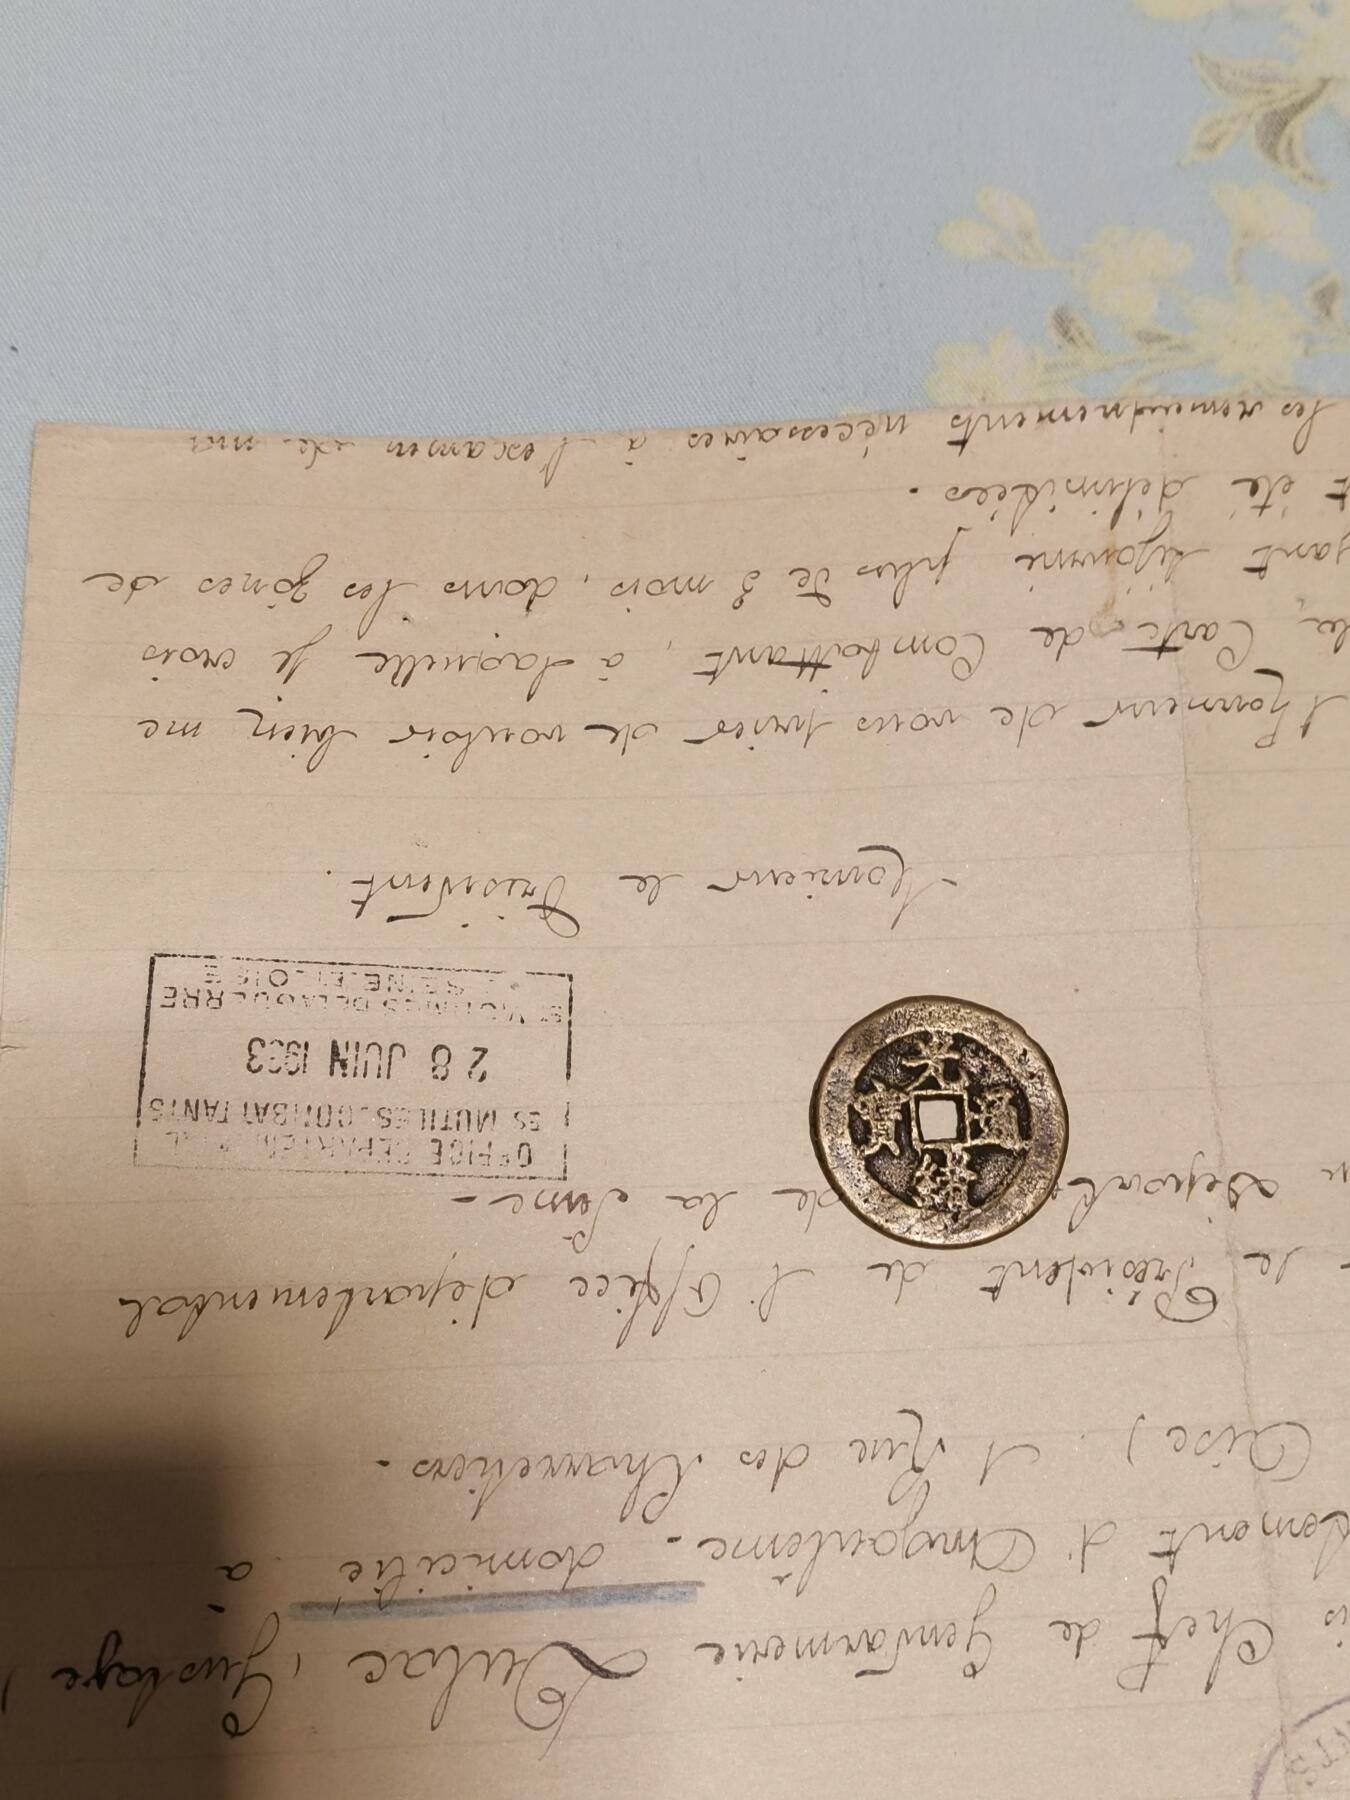 is Chef de Gendarmerie Dulac (Gustave)
d'Angoulême - domicilié à
Oise). 1 Rue des Charretiers.
le Président de l'Office départemental
de la Seine -
OFFICE DEPARTEMENTAL
ES MUTILES COMBATTANTS
28 JUIN 1933
ET VICTIMES DE LA GUERRE
SEINE-ET-OISE
Monsieur le Président.
l'honneur de vous prier de vouloir bien me
la Carte de Combattant, à laquelle je crois
ayant séjourné plus de 3 mois, dans les zones de
t été délimitées.
les renseignements nécessaires à l'examen de ma
光緒通寶